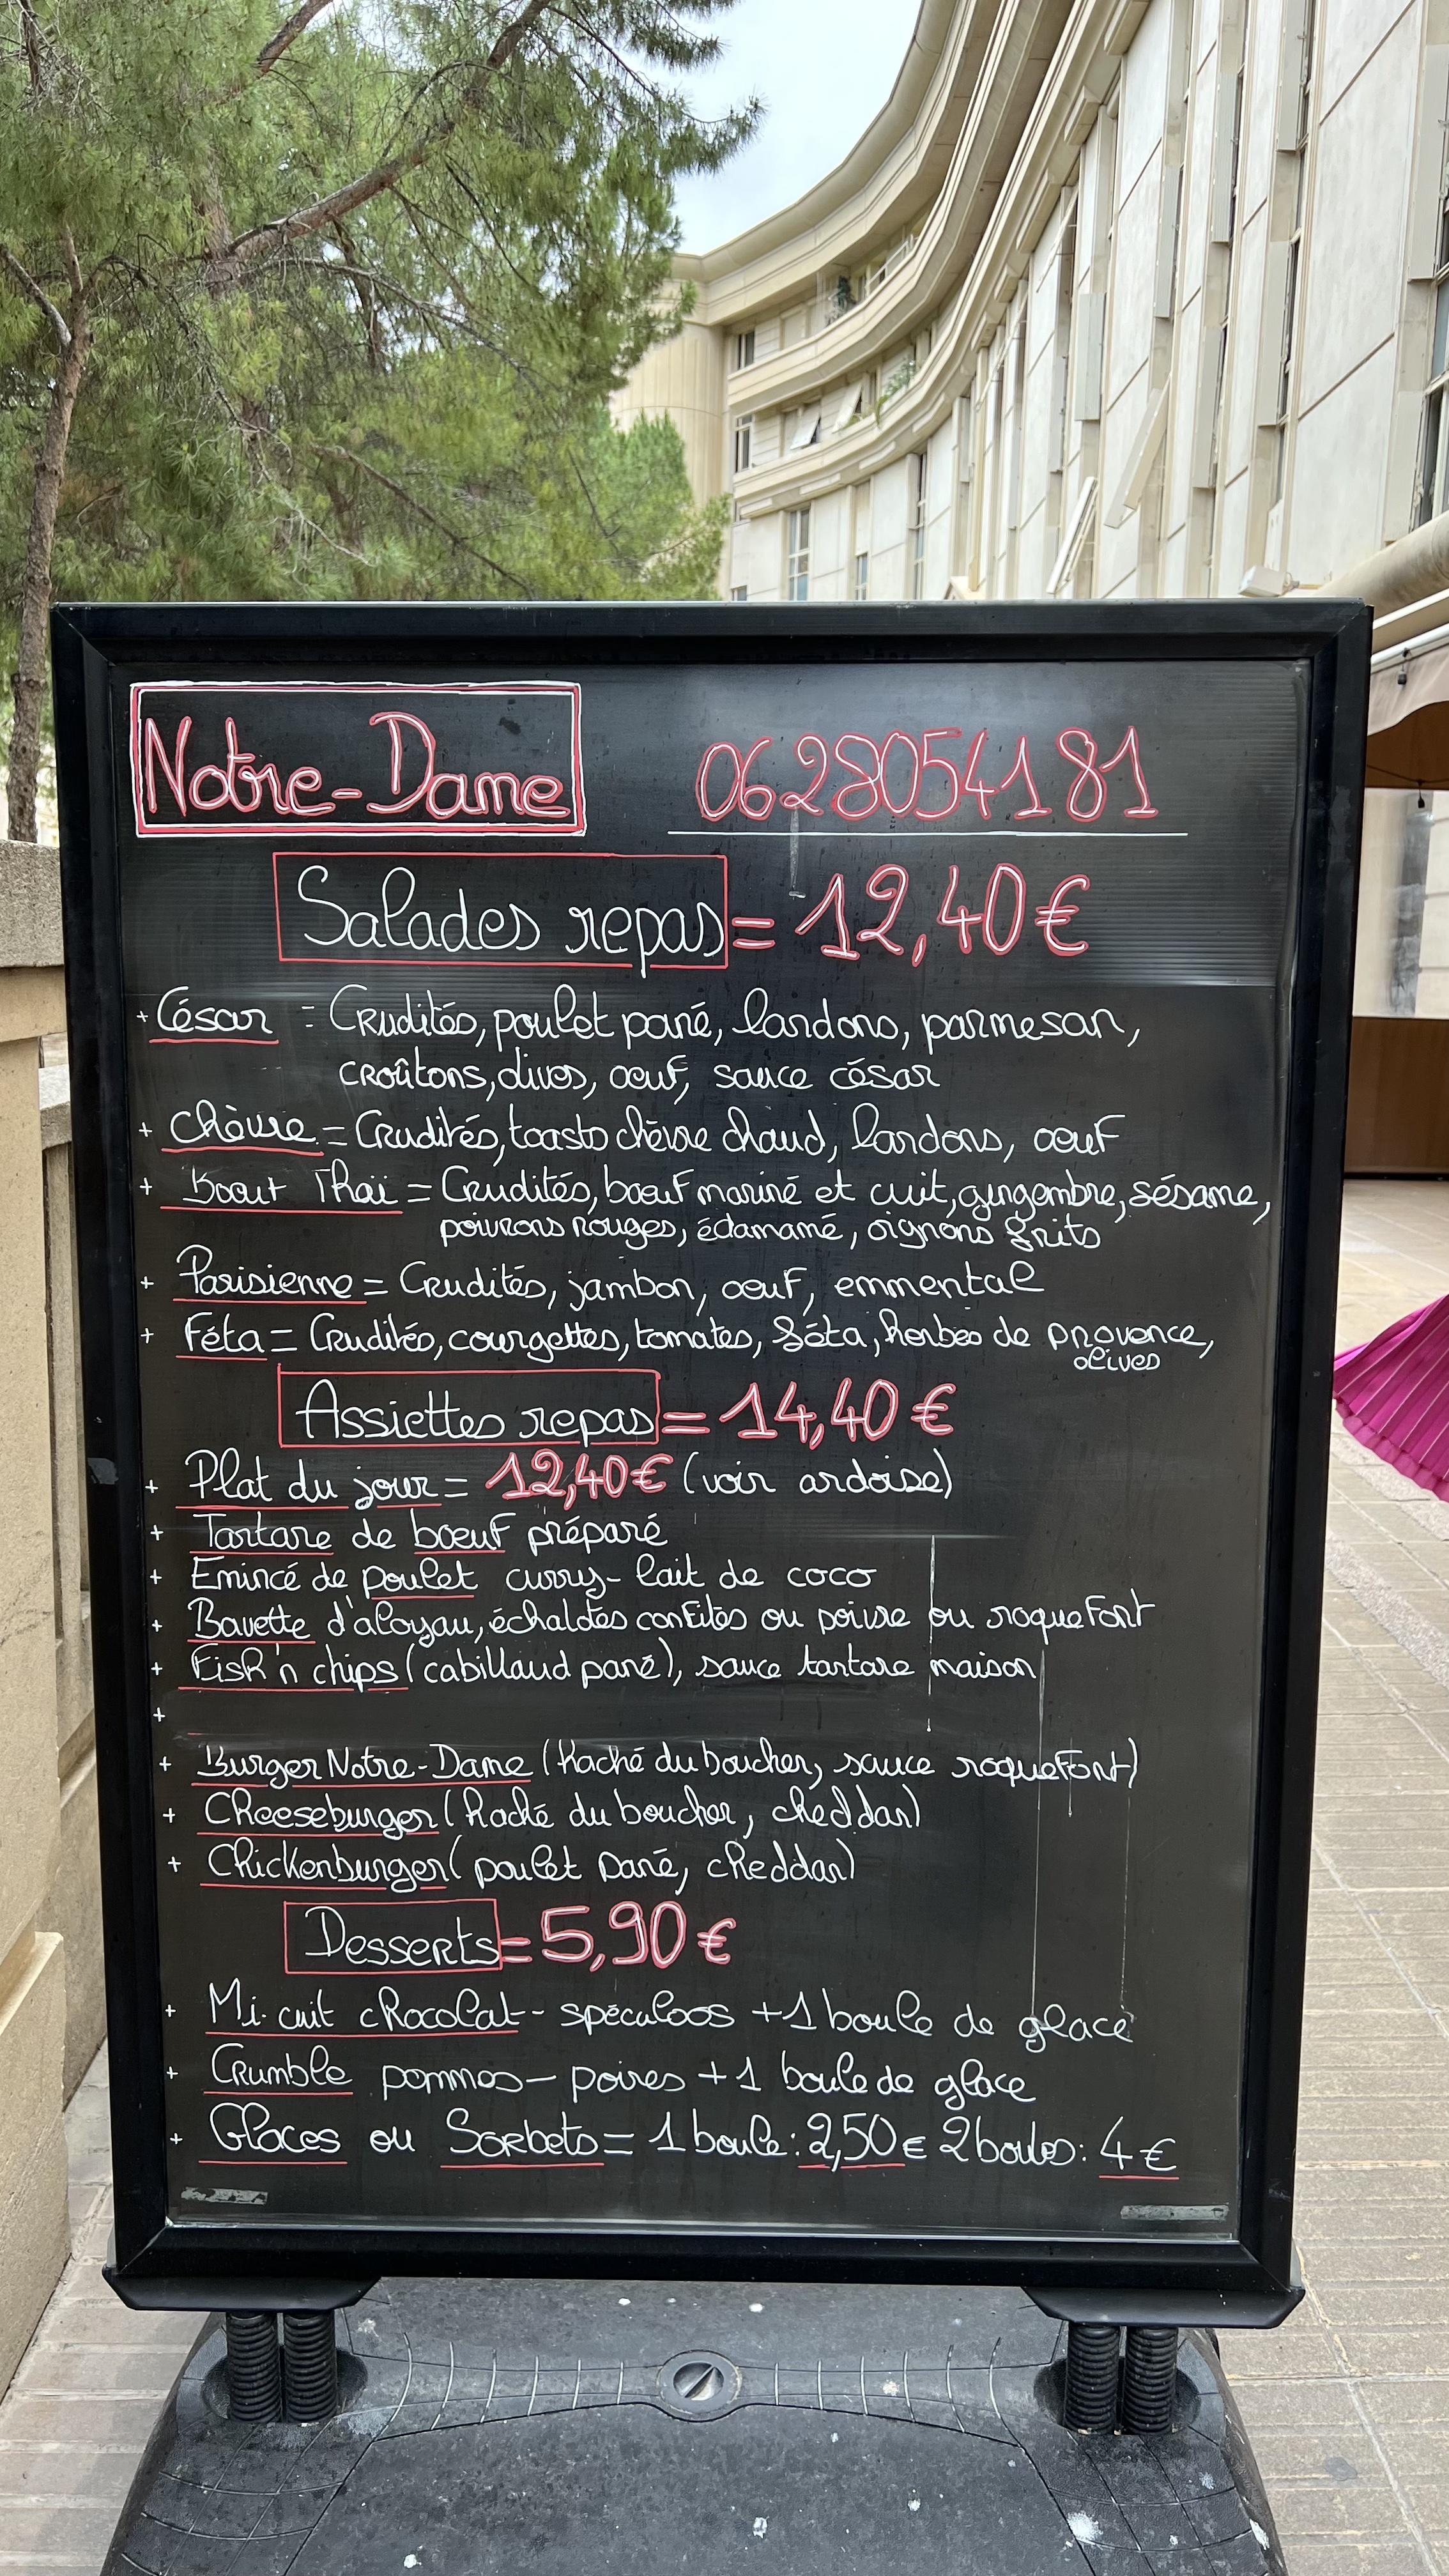 Notre-Dame 0628054181
Salades repas = 12,40€
+ César = Crudités, poulet pané, lardons, parmesan,
croûtons, olives, oeuf, sauce césar
+ Chèvre = Crudités, toasts chèvre chaud, lardons, oeuf
+ Boeuf Thaï = Crudités, boeuf mariné et cuit, gingembre, sésame,
poivrons rouges, édamamé, oignons frits
+ Parisienne = Crudités, jambon, oeuf, emmental
+ Féta = Crudités, courgettes, tomates, féta, herbes de provence,
olives
Assiettes repas = 14,40 €
+ Plat du jour = 12,40€ (voir ardoise)
+ Tartare de boeuf préparé
+ Emincé de poulet curry - lait de coco
+ Bavette d'aloyau, échalotes confites ou poivre ou roquefort
+ Fish'n chips (cabillaud pané), sauce tartare maison
+
+ Burger Notre-Dame (haché du boucher, sauce roquefort)
+ Cheeseburger (haché du boucher, cheddar)
+ Chickenburger (poulet pané, cheddar)
Desserts = 5,90 €
+ Mi-cuit chocolat - spéculoos + 1 boule de glace
+ Crumble pommes - poires + 1 boule de glace
+ Glaces ou Sorbets = 1 boule : 2,50 € 2 boules : 4 €